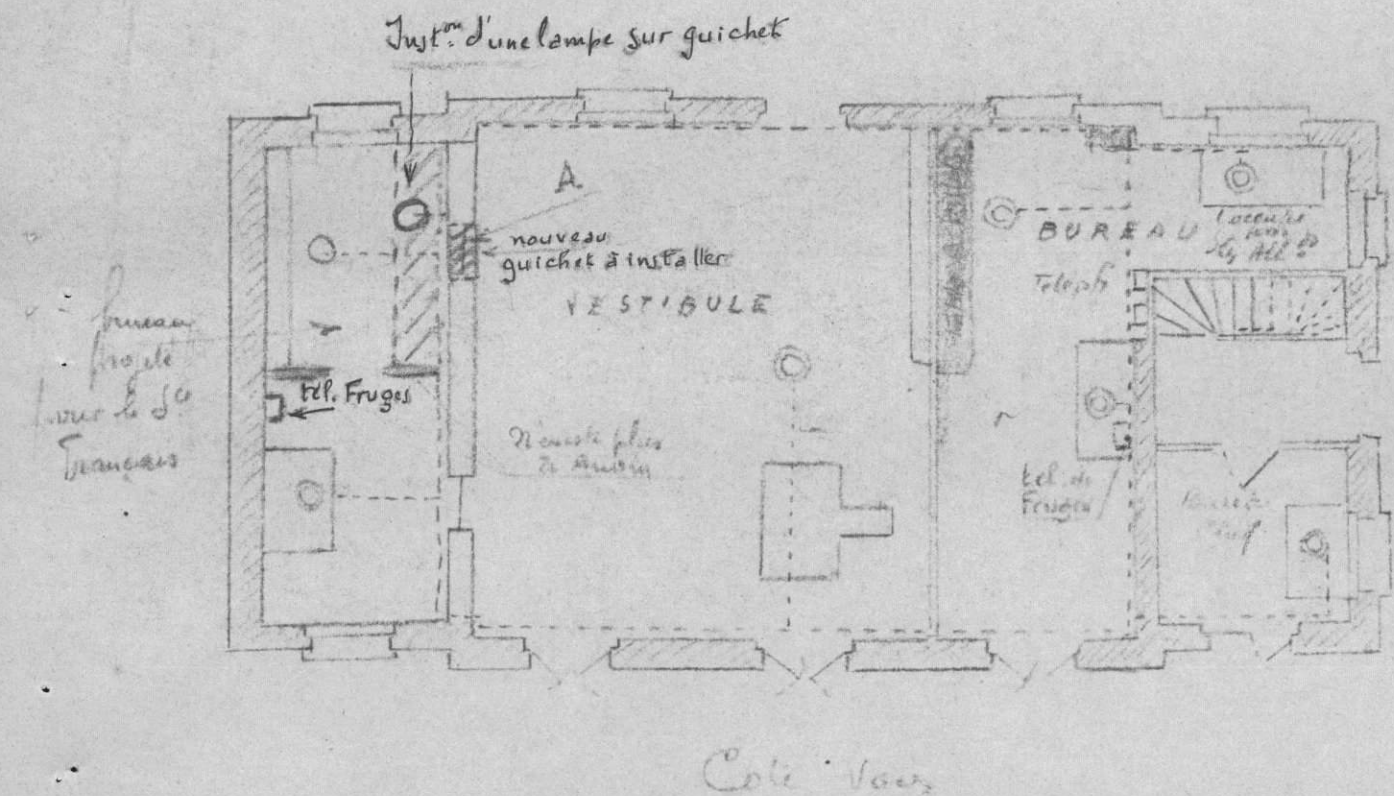 Inst.on d'une lampe sur guichet
A
nouveau
guichet à installer
VESTIBULE
BUREAU
Teleph
bureau
projeté
pour le Sce
Français
tél. Fruges
N'existe plus
tel. de
Fruges
Coté Voies